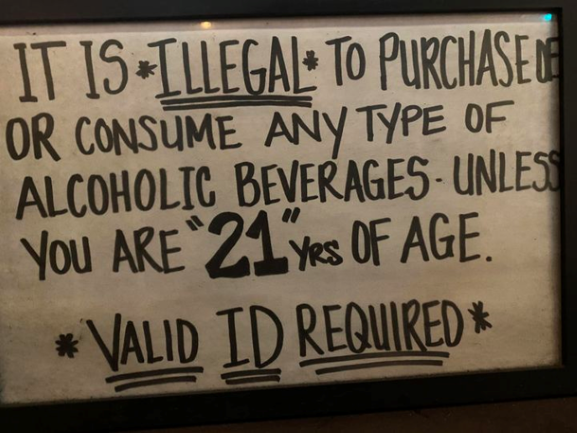 IT IS *ILLEGAL* TO PURCHASE
OR CONSUME ANY TYPE OF
ALCOHOLIC BEVERAGES - UNLESS
YOU ARE "21" YRS OF AGE.
* VALID ID REQUIRED *